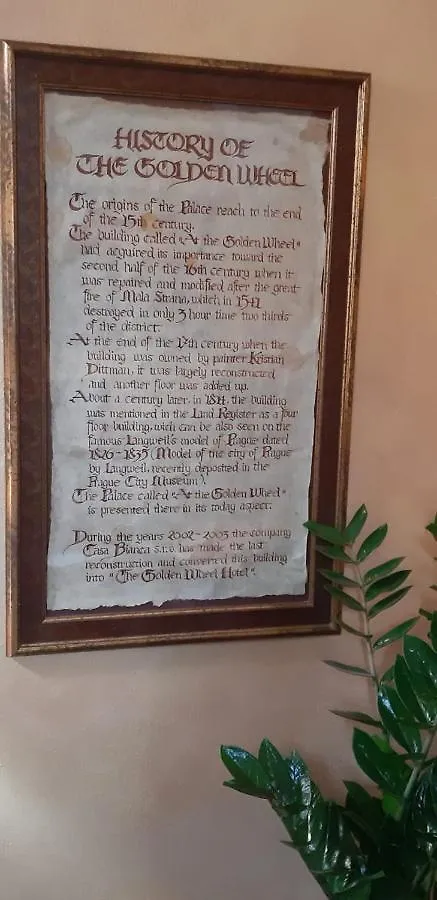 HISTORY OF
THE GOLDEN WHEEL
The origins of the Palace reach to the end
of the 15th century.
The building called "At the Golden Wheel"
had acquired its importance toward the
second half of the 16th century when it
was repaired and modified after the great
fire of Mala Strana, which in 1541
destroyed in only 3 hour time two thirds
of the district.
At the end of the 17th century when the
building was owned by painter Kristian
Dittman, it was largely reconstructed
and another floor was added up.
About a century later, in 1811, the building
was mentioned in the Land Register as a four
floor building, wich can be also seen on the
famous Langweil's model of Prague dated
1826-1835 (Model of the city of Prague
by Langweil, recently deposited in the
Prague City Museum).
The Palace called "At the Golden Wheel"
is presented there in its today aspect.
During the years 2002-2003 the company
Casa Bianca s.r.o has made the last
reconstruction and converted this building
into "The Golden Wheel Hotel".